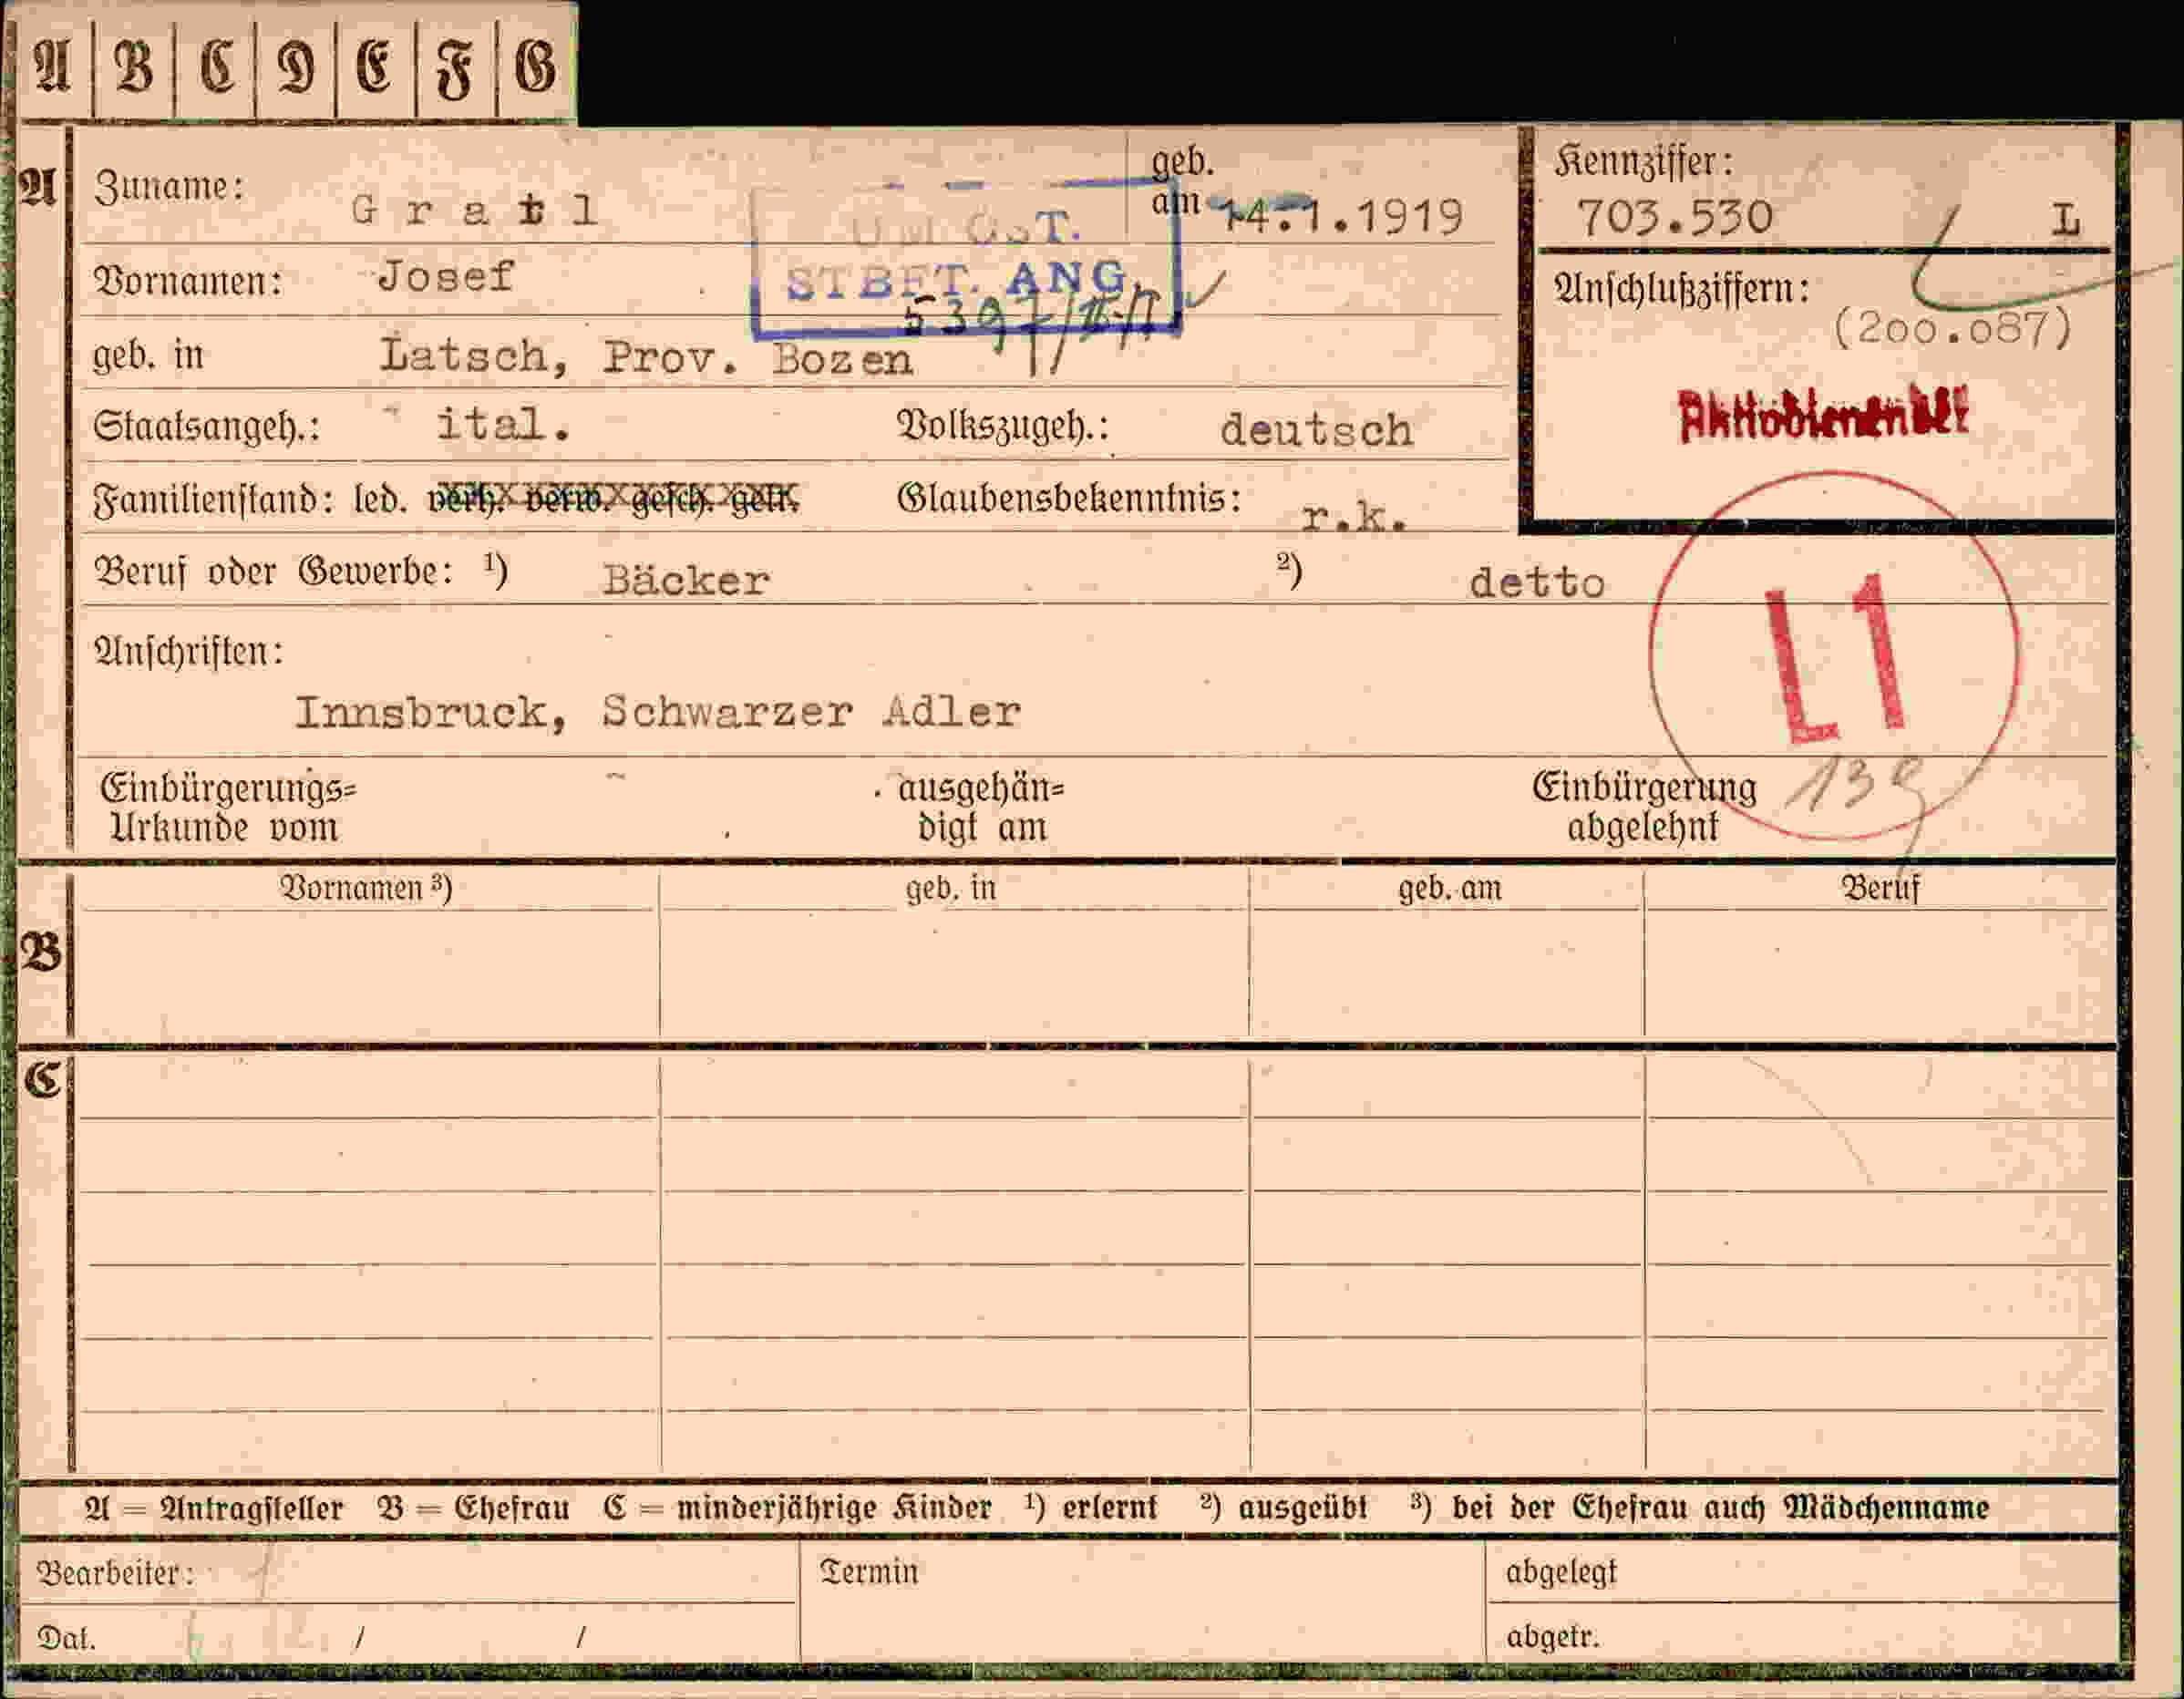 A B C D E F G
A Zuname: Gratl geb. am 14.1.1919
Kennziffer: 703.530 L
Vornamen: Josef
STBFT. ANG.
Anschlußziffern: (200.087)
geb. in Latsch, Prov. Bozen
Staatsangeh.: ital. Volkszugeh.: deutsch
Familienstand: led. verh. verw. gesch. getr. Glaubensbekenntnis: r.k.
Beruf oder Gewerbe: ¹) Bäcker ²) detto
L1
Anschriften:
Innsbruck, Schwarzer Adler
139
Einbürgerungs= ausgehän= Einbürgerung
Urkunde vom digt am abgelehnt
Vornamen ³) geb. in geb. am Beruf
B
C
A = Antragsteller B = Ehefrau C = minderjährige Kinder ¹) erlernt ²) ausgeübt ³) bei der Ehefrau auch Mädchenname
Bearbeiter: Termin abgelegt
Dat. / / abgetr.